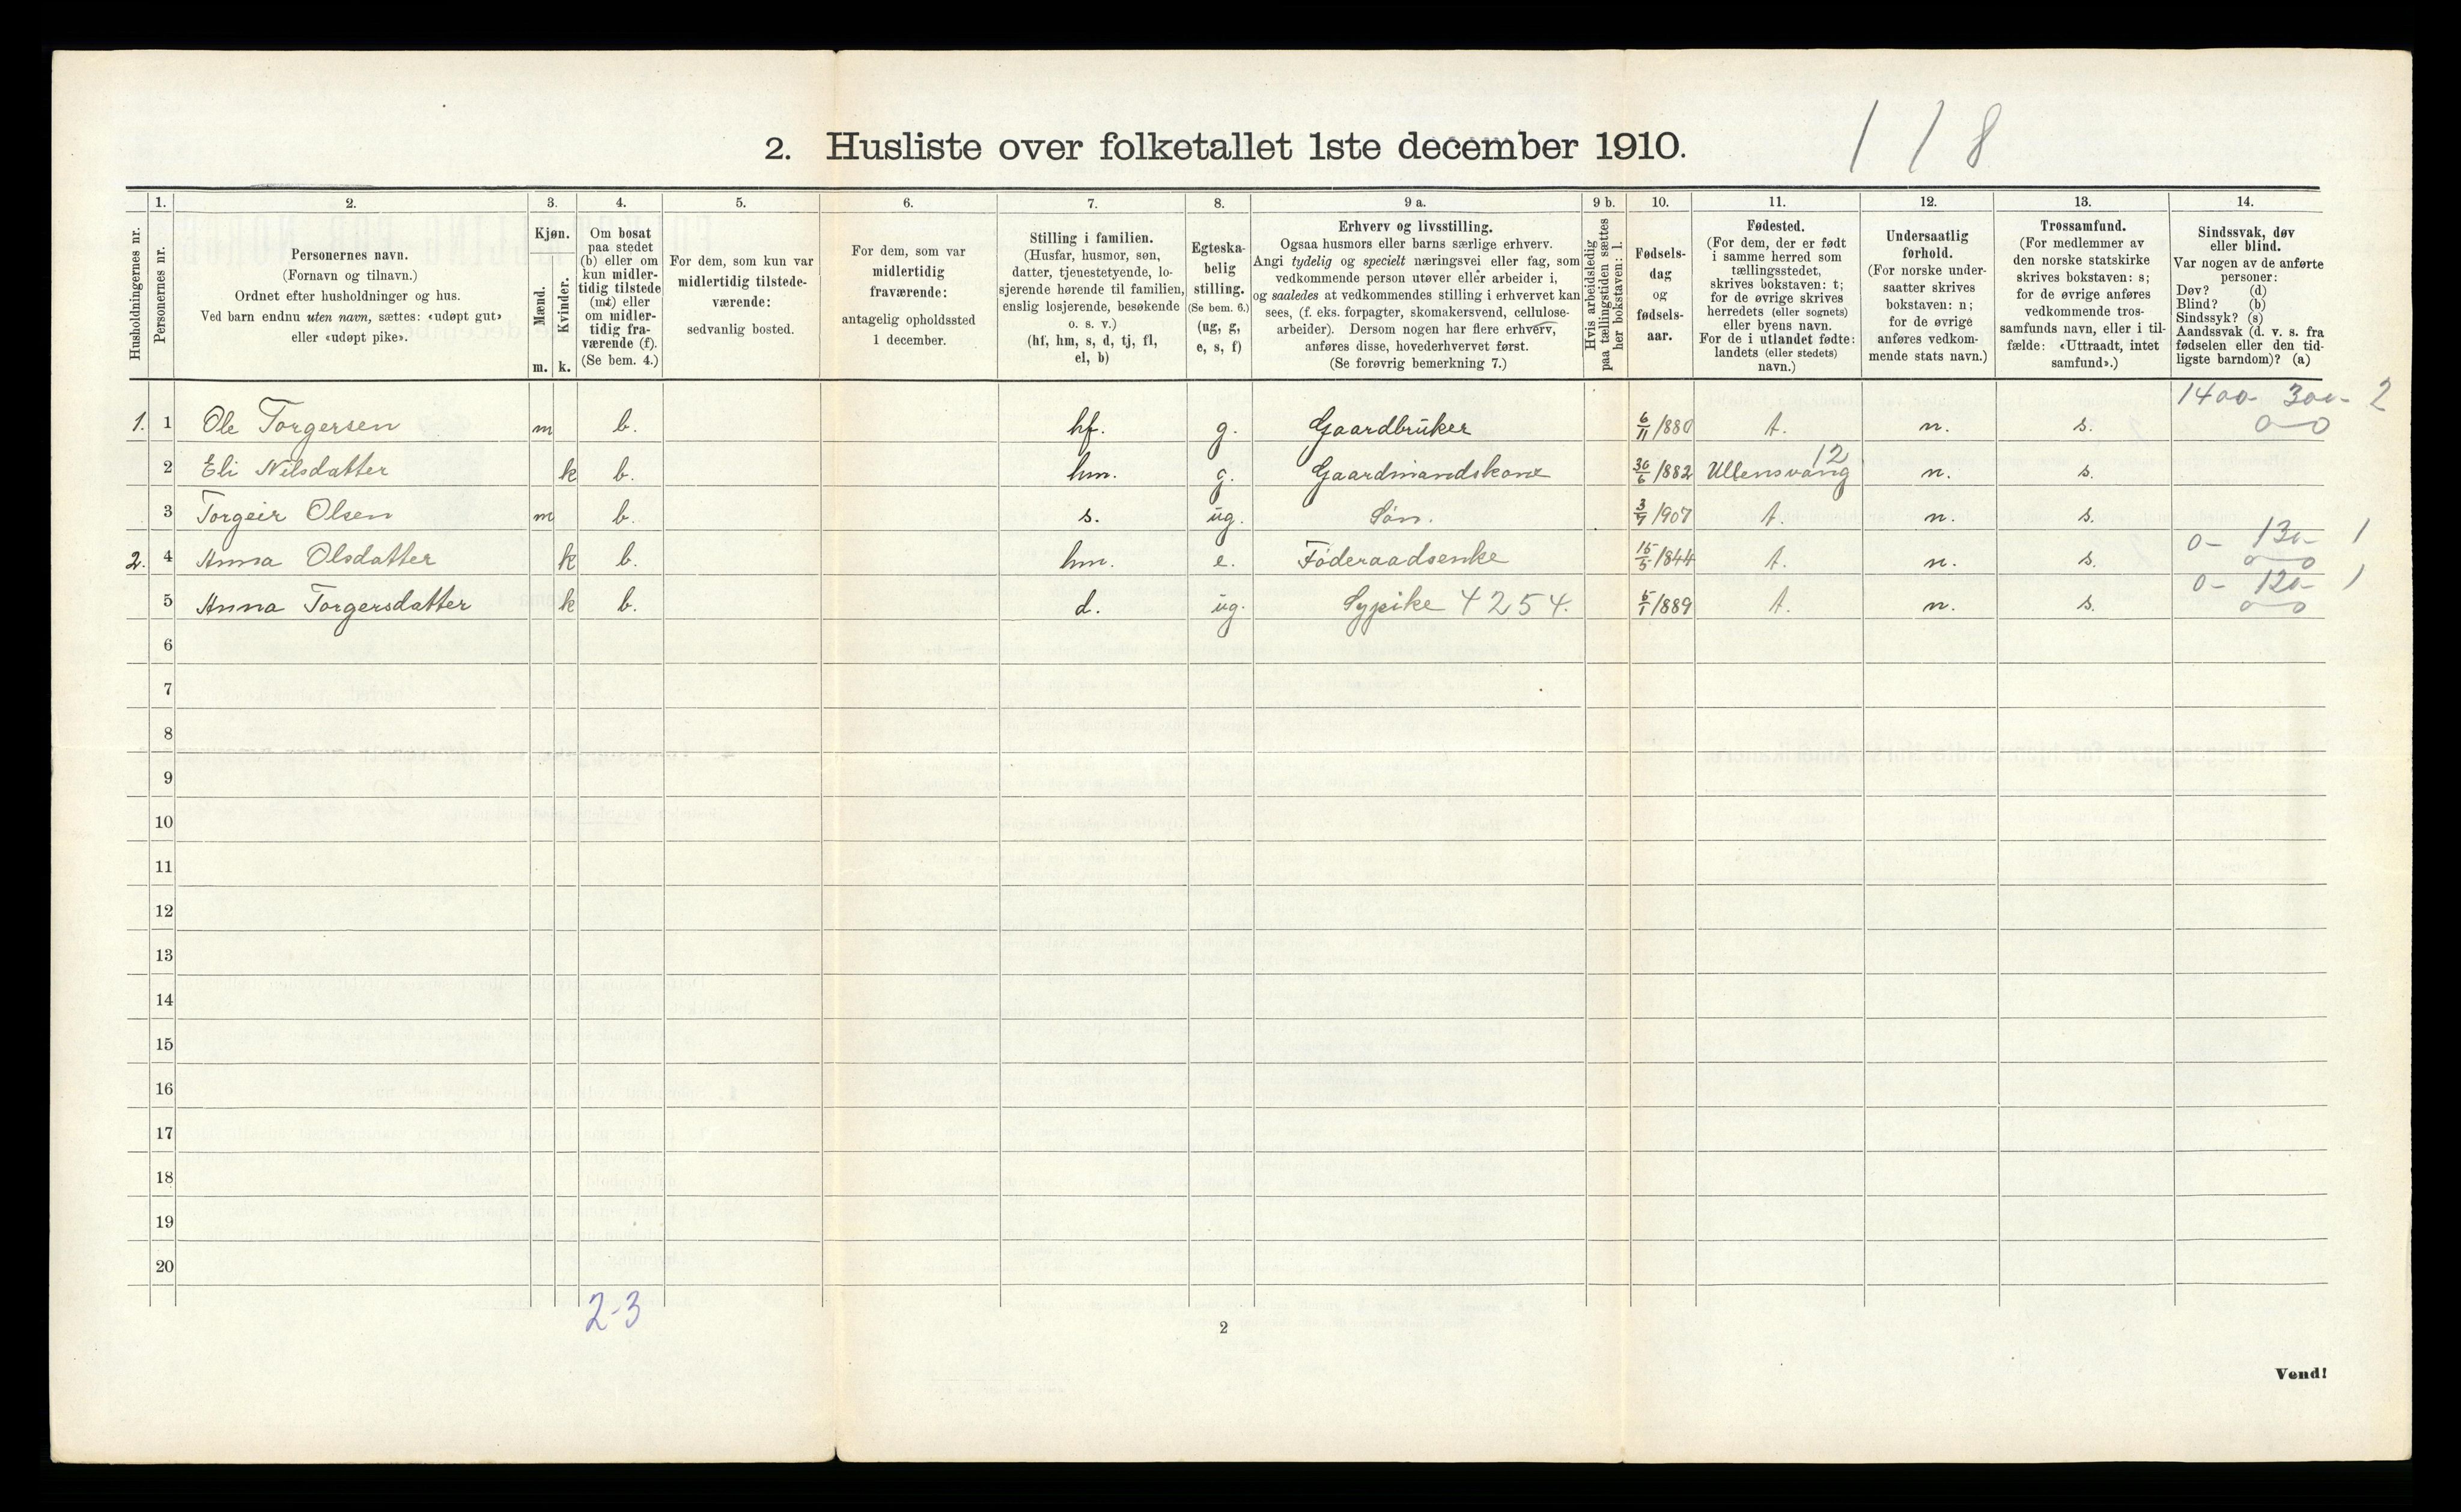 2. Husliste over folketallet 1ste december 1910.
118
Husholdningernes nr.
1.
Personernes nr.
2.
Personernes navn.
(Fornavn og tilnavn.)
Ordnet efter husholdninger og hus.
Ved barn endnu uten navn, sættes: «udøpt gut»
eller «udøpt pike».
3.
Kjøn.
Mænd.
Kvinder.
m. k.
4.
Om bosat
paa stedet
(b) eller om
kun midler-
tidig tilstede
(mt) eller
om midler-
tidig fra-
værende (f).
(Se bem. 4.)
5.
For dem, som kun var
midlertidig tilstede-
værende:
sedvanlig bosted.
6.
For dem, som var
midlertidig
fraværende:
antagelig opholdssted
1 december.
7.
Stilling i familien.
(Husfar, husmor, søn,
datter, tjenestetyende, lo-
sjerende hørende til familien,
enslig losjerende, besøkende
o. s. v.)
(hf, hm, s, d, tj, fl,
el, b)
8.
Egteska-
belig
stilling.
(Se bem. 6.)
(ug, g,
e, s, f)
9 a.
Erhverv og livsstilling.
Ogsaa husmors eller barns særlige erhverv.
Angi tydelig og specielt næringsvei eller fag, som
vedkommende person utøver eller arbeider i,
og saaledes at vedkommendes stilling i erhvervet kan
sees, (f. eks. forpagter, skomakersvend, cellulose-
arbeider). Dersom nogen har flere erhverv,
anføres disse, hovederhvervet først.
(Se forøvrig bemerkning 7.)
9 b.
Hvis arbeidsledig
paa tællingstiden sættes
her bokstaven: l.
10.
Fødsels-
dag
og
fødsels-
aar.
11.
Fødested.
(For dem, der er født
i samme herred som
tællingsstedet,
skrives bokstaven: t;
for de øvrige skrives
herredets (eller sognets)
eller byens navn.
For de i utlandet fødte:
landets (eller stedets)
navn.)
12.
Undersaatlig
forhold.
(For norske under-
saatter skrives
bokstaven: n;
for de øvrige
anføres vedkom-
mende stats navn.)
13.
Trossamfund.
(For medlemmer av
den norske statskirke
skrives bokstaven: s;
for de øvrige anføres
vedkommende tros-
samfunds navn, eller i til-
fælde: «Uttraadt, intet
samfund».)
14.
Sindssvak, døv
eller blind.
Var nogen av de anførte
personer:
Døv? (d)
Blind? (b)
Sindssyk? (s)
Aandssvak (d. v. s. fra
fødselen eller den tid-
ligste barndom)? (a)
1400- 300- 2
1. 1 Ole Torgersen m b. hf. g. Gaardbruker 6/11 1880 t. n. s. 0-0
12
2 Eli Nilsdatter k b. hm. g. Gaardmandskone 30/6 1882 Ullensvang n. s.
3 Torgeir Olsen m b. s. ug. Søn. 3/9 1907 t. n. s.
0- 130- 1
2. 4 Anna Olsdatter k b. hm. e. Føderaadsenke 15/5 1844 t. n. s. 0-0
0- 120- 1
5 Anna Torgersdatter k b. d. ug. Sypike 4254. 5/1 1889 t. n. s. 0-0
6
7
8
9
10
11
12
13
14
15
16
17
18
19
20
2-3
2
Vend!